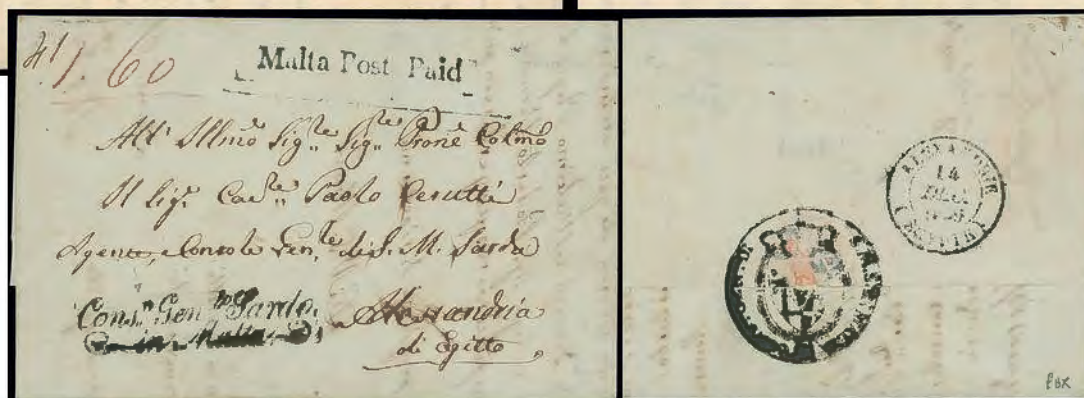 1.60
Malta Post Paid
All' Illmo Sig.re Sig.re Prone Colmo
Il Sig.r Cav.re Paolo Cerutti
Agente, e Console Gen.le di S. M. Sarda
Cons.to Gen.le Sardo
in Malta
Alessandria
di Egitto
ALEXANDRIE
14
(EGYPTE)